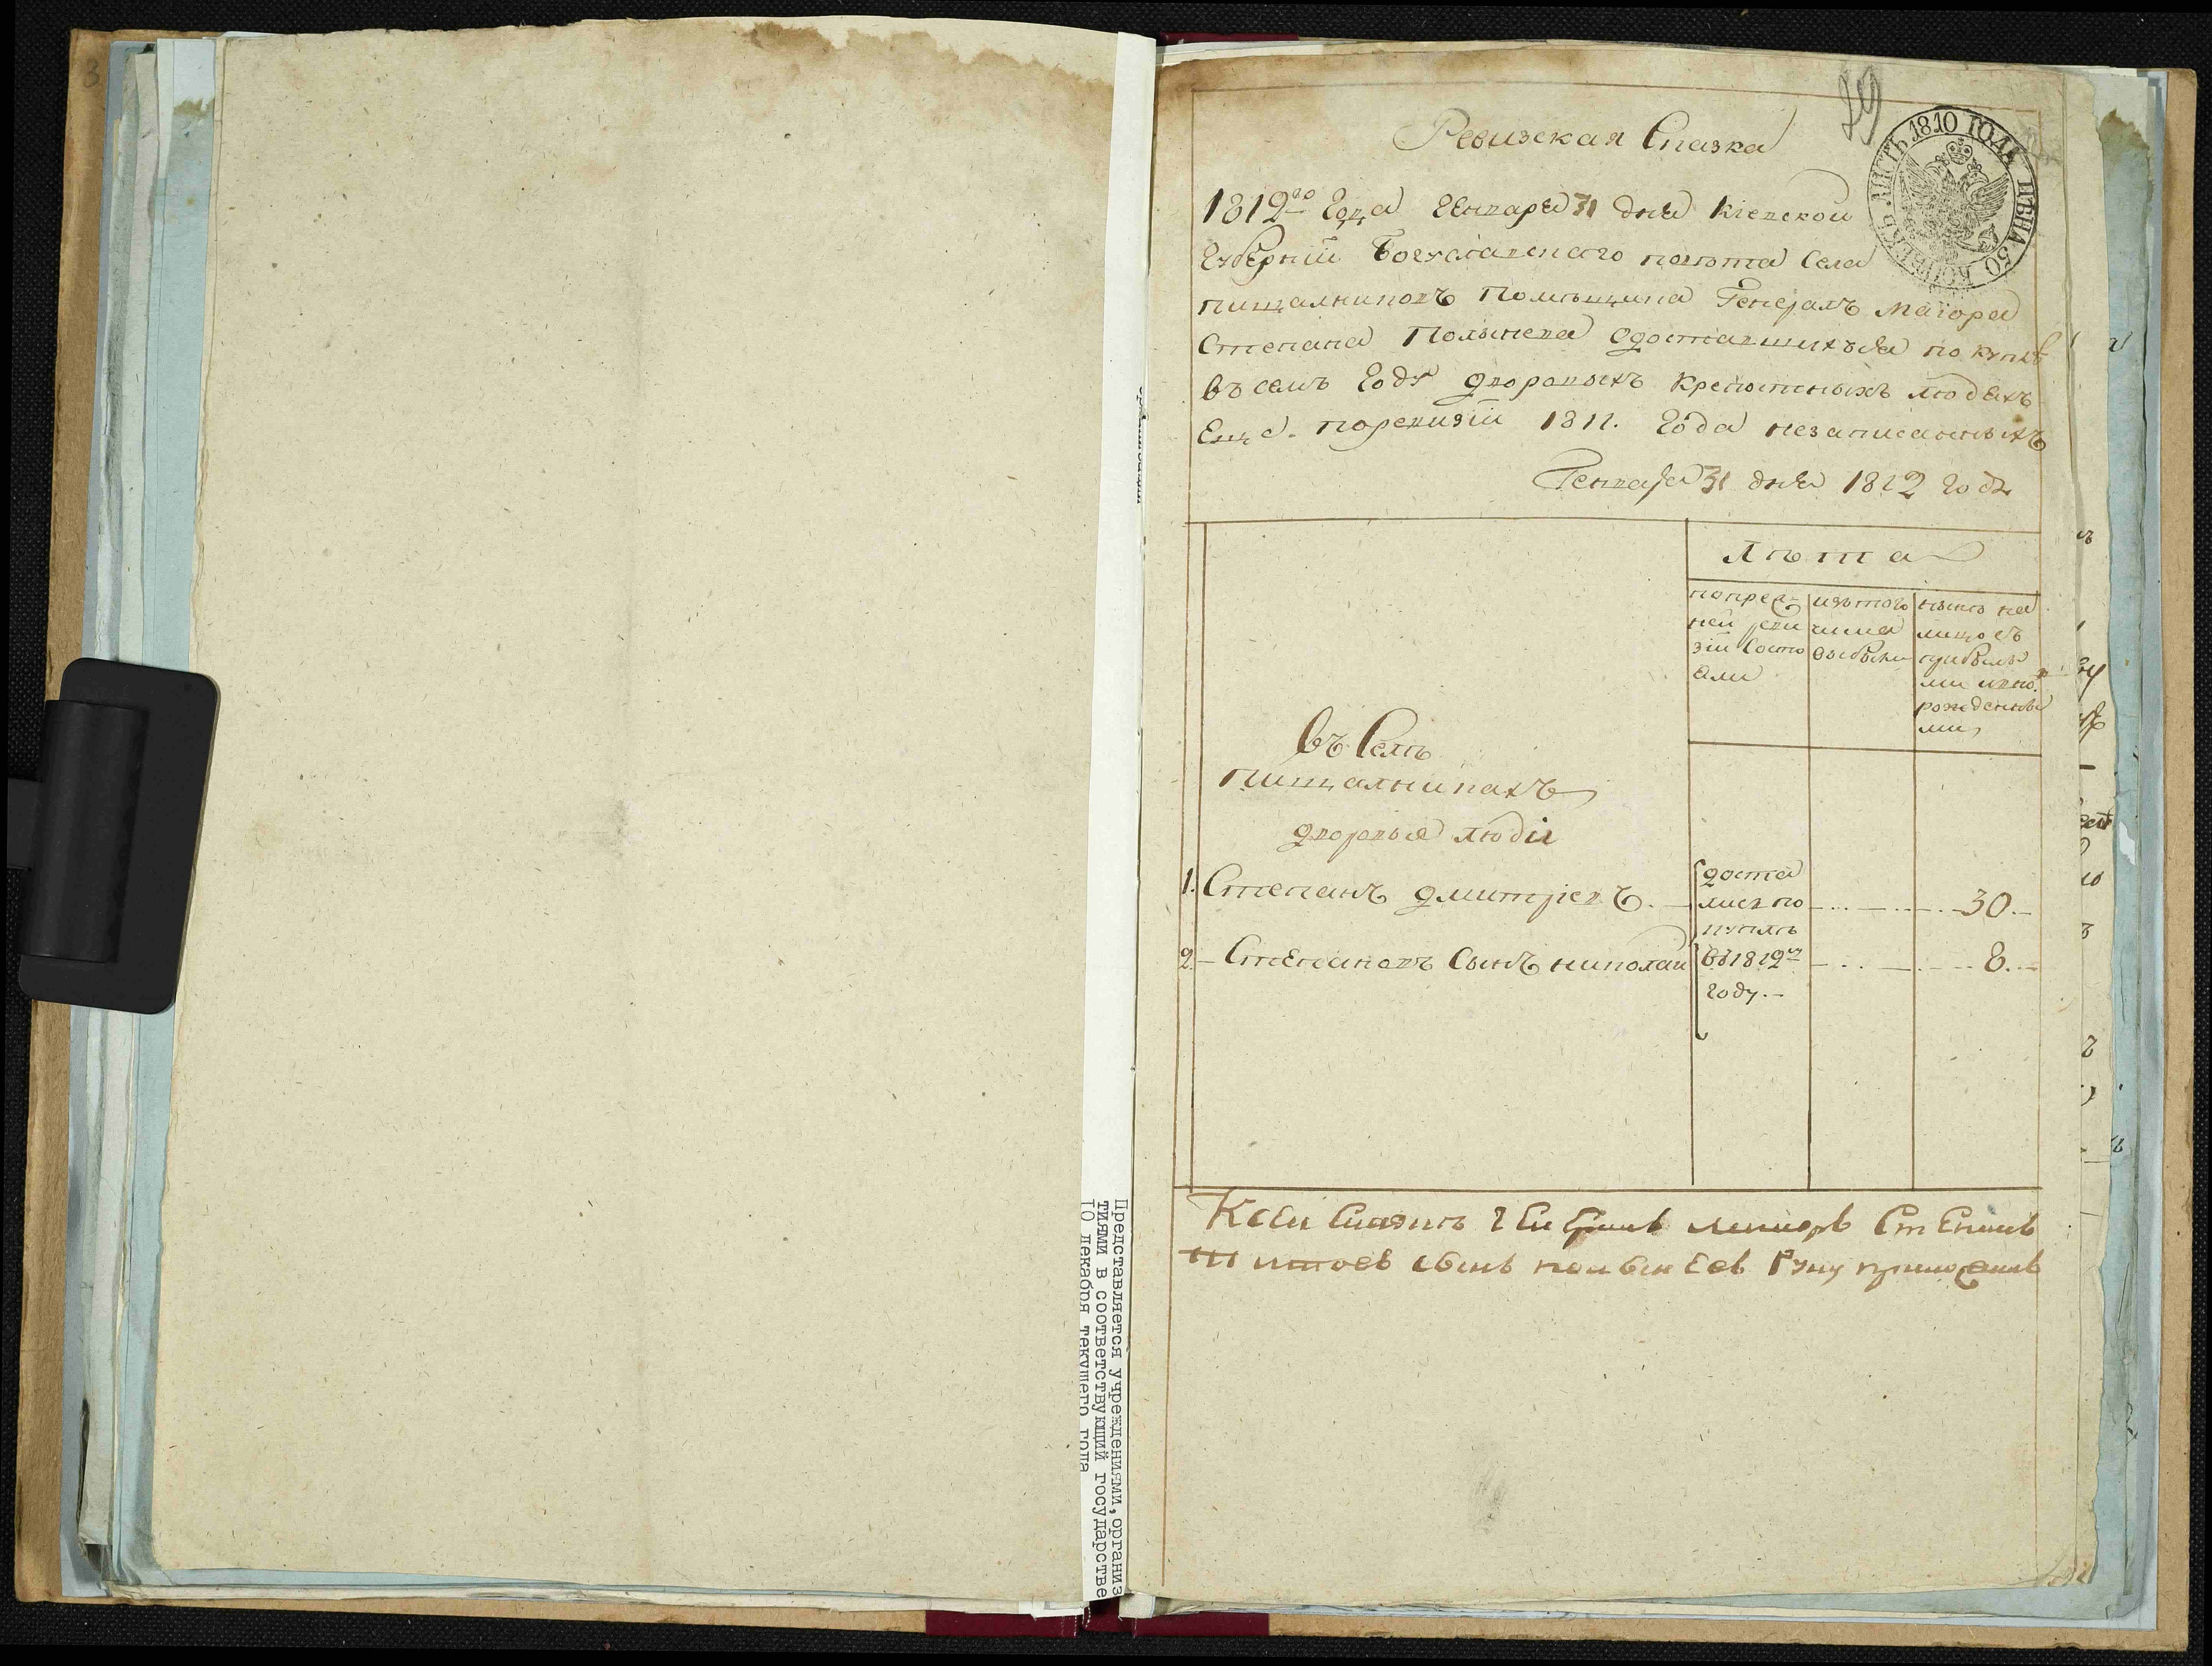 3
29
Ревизская Сказка
ЛИСТЪ 1810 ГОДА ЦѢНА 50 КОПѢЕКЪ
1812го Года Генваря 31 дня Кіевской
Губерніи Богуславского повѣта Села
пищалниковъ Помѣщика Генералъ Маіора
Степана Полынева одоставшихъся по купле
въ семъ Году дворовыхъ крепостныхъ людяхъ
Еще поревизіи 1811. Года незаписанныхъ
Генваря 31 дня 1812 Года
Лѣта
попред-
ней реви
зіи Состо
яли
изътого
числа
выбыли
нынѣ на
лицо съ
прибылы
ми и вно
рожденны
ми
въ Селѣ
пищалникахъ
дворовые людіи
1. Степанъ дмитріевъ.
доста
лись по
купле
въ 1812м
Году.
30.
2. Степановъ Сынъ николай
8.
Ксеи Сказке Генералъ маиоръ Степанъ
сынъ Руку приложилъ
Представляется учреждениями, организ
тиями в соответствующий государстве
10 декабря текущего года